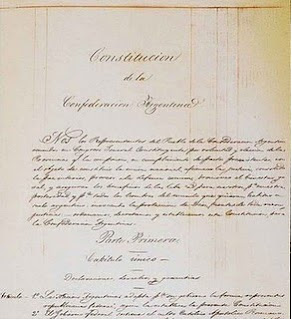 Constitucion
de la
Confederacion Argentina
Nos los Representantes del Pueblo de la Confederacion Argentina
reunidos en Congreso General Constituyente por voluntad y eleccion de las
Provincias que la componen, en cumplimiento de pactos preexistentes, con
el objeto de constituir la union nacional, afianzar la justicia, consolidar
la paz interior, proveer a la defensa comun, promover el bienestar ge-
neral, y asegurar los beneficios de la libertad, para nosotros, para nuestra
posteridad, y para todos los hombres del mundo que quieran habitar en el
suelo argentino; invocando la proteccion de Dios, fuente de toda razon y
justicia: ordenamos, decretamos y establecemos esta Constitucion para
la Confederacion Argentina.
Parte Primera
Capítulo único
Declaraciones, derechos y garantias
Articulo 1º La Nacion Argentina adopta para su gobierno la forma representativa
republicana federal, segun la establece la presente Constitucion.
2º El Gobierno Federal sostiene el culto Catolico Apostolico Romano.